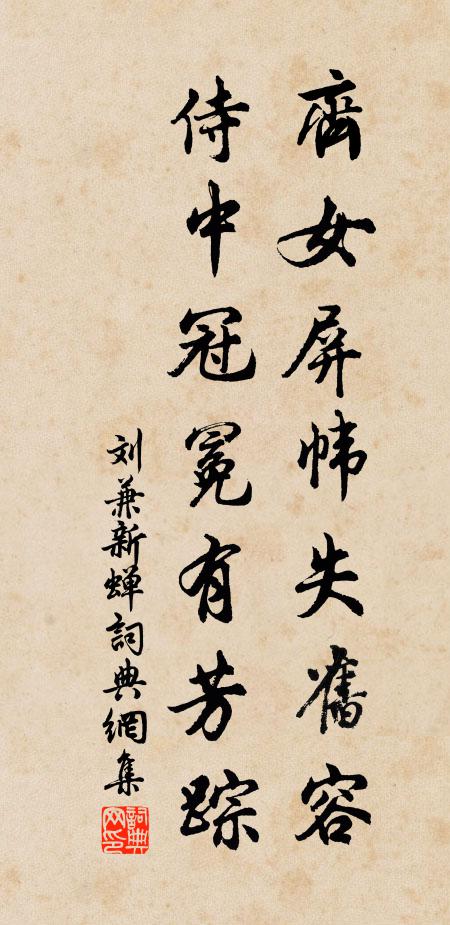 齊女屏幃失舊容
侍中冠冕有芳踪
刘兼新蝉詞典網集
詞典网印